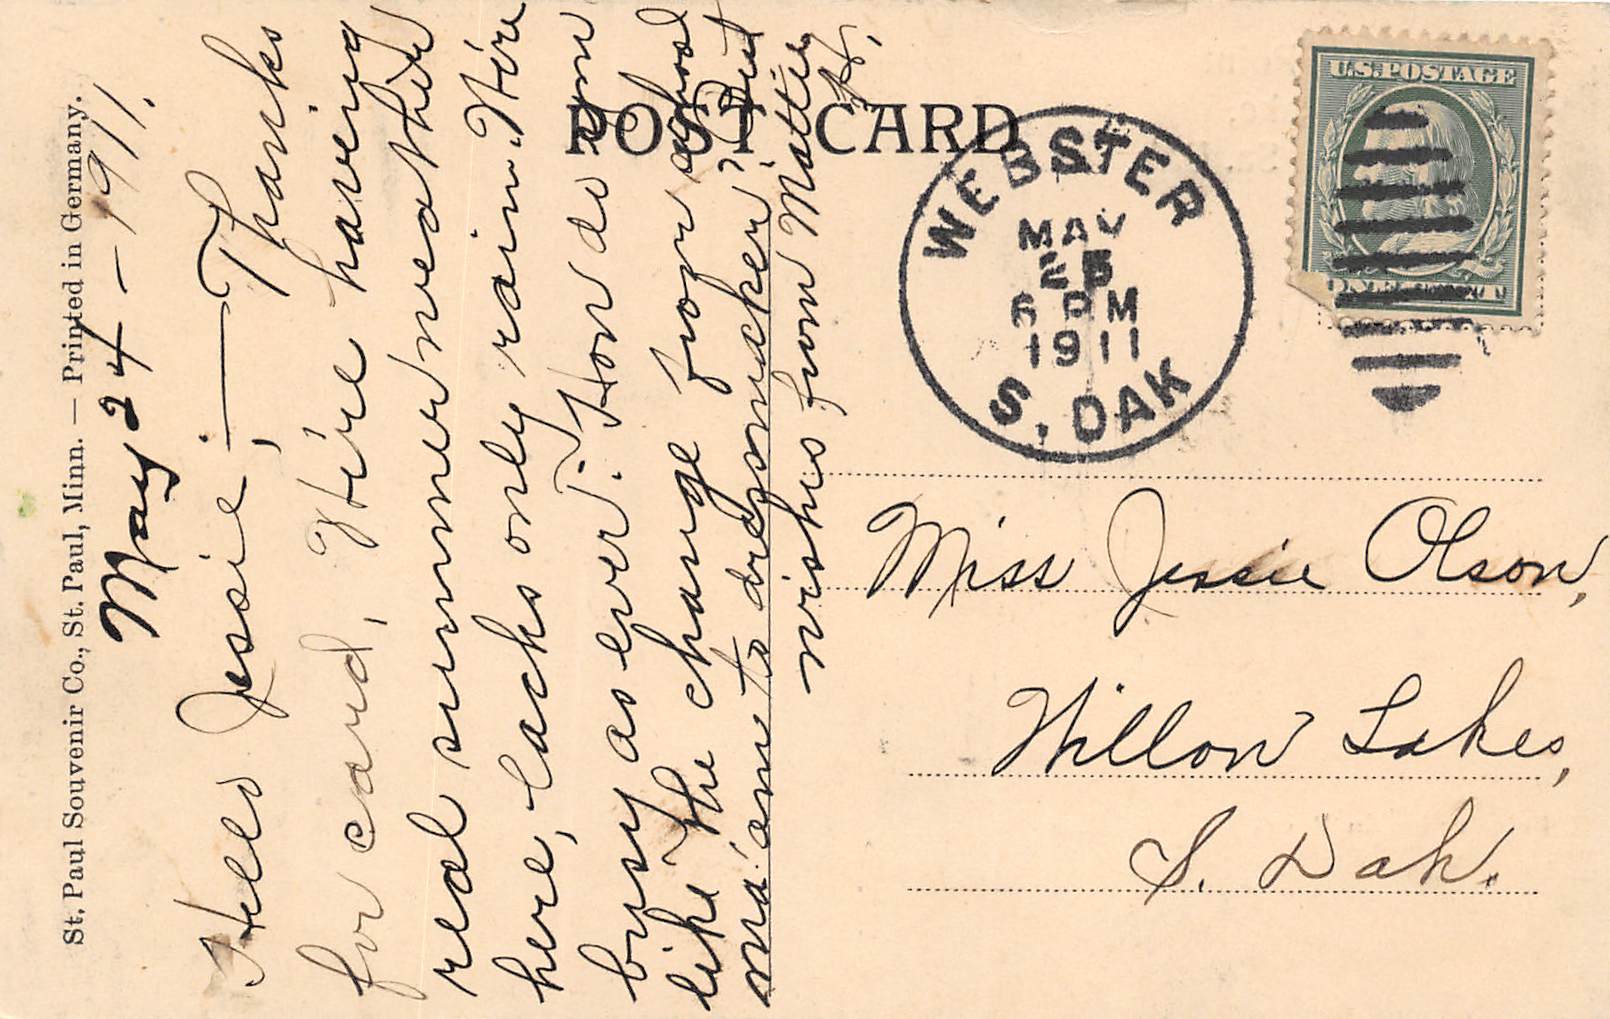 St. Paul Souvenir Co., St. Paul, Minn. — Printed in Germany.
May 24 - 1911.
Hello Jessie; — Thanks
for card, We're having
real summer weather
here, lacks only rain. We're
busy as ever. How do you
like the change from school
ma'am to dressmaker? Best
wishes from Mattie
H.
POST CARD
WEBSTER
MAY
25
6 PM
1911
S. DAK
U.S. POSTAGE
ONE CENT
Miss Jessie Olson,
Willow Lakes,
S. Dak.